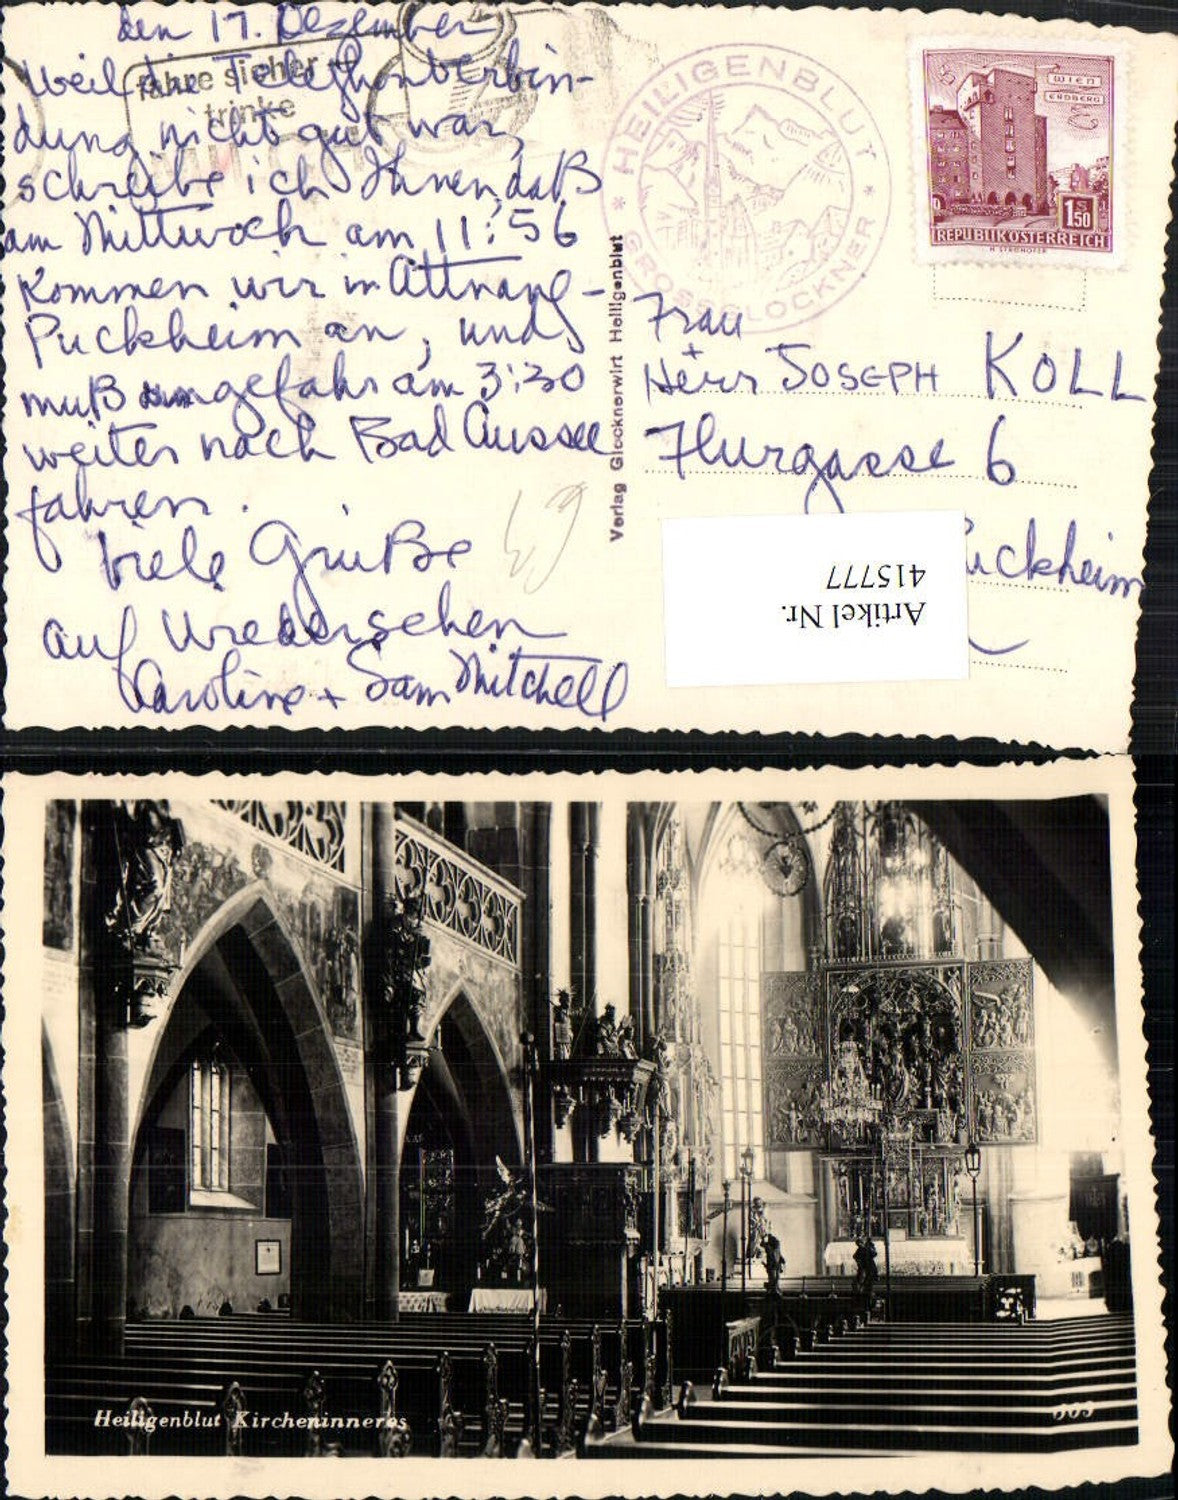 den 17. Dezember
Weil die Telephonverbin-
dung nicht gut war,
schreibe ich Ihnen, daß
am Mittwoch am 11:56
kommen wir in Attnang-
Puckheim an, und
muß ungefähr am 3:30
weiter nach Bad Aussee
fahren.
Viele Grüße
auf Wiedersehen
Caroline + Sam Mitchell
fahre sicher
trinke
HEILIGENBLUT
GROSSGLOCKNER
WIEN
ERDBERG
S
1.50
REPUBLIK ÖSTERREICH
Verlag Glocknerwirt Heiligenblut
Frau
+
Herr JOSEPH KOLL
Flurgasse 6
uckheim
Artikel Nr.
415777
Heiligenblut Kircheninneres